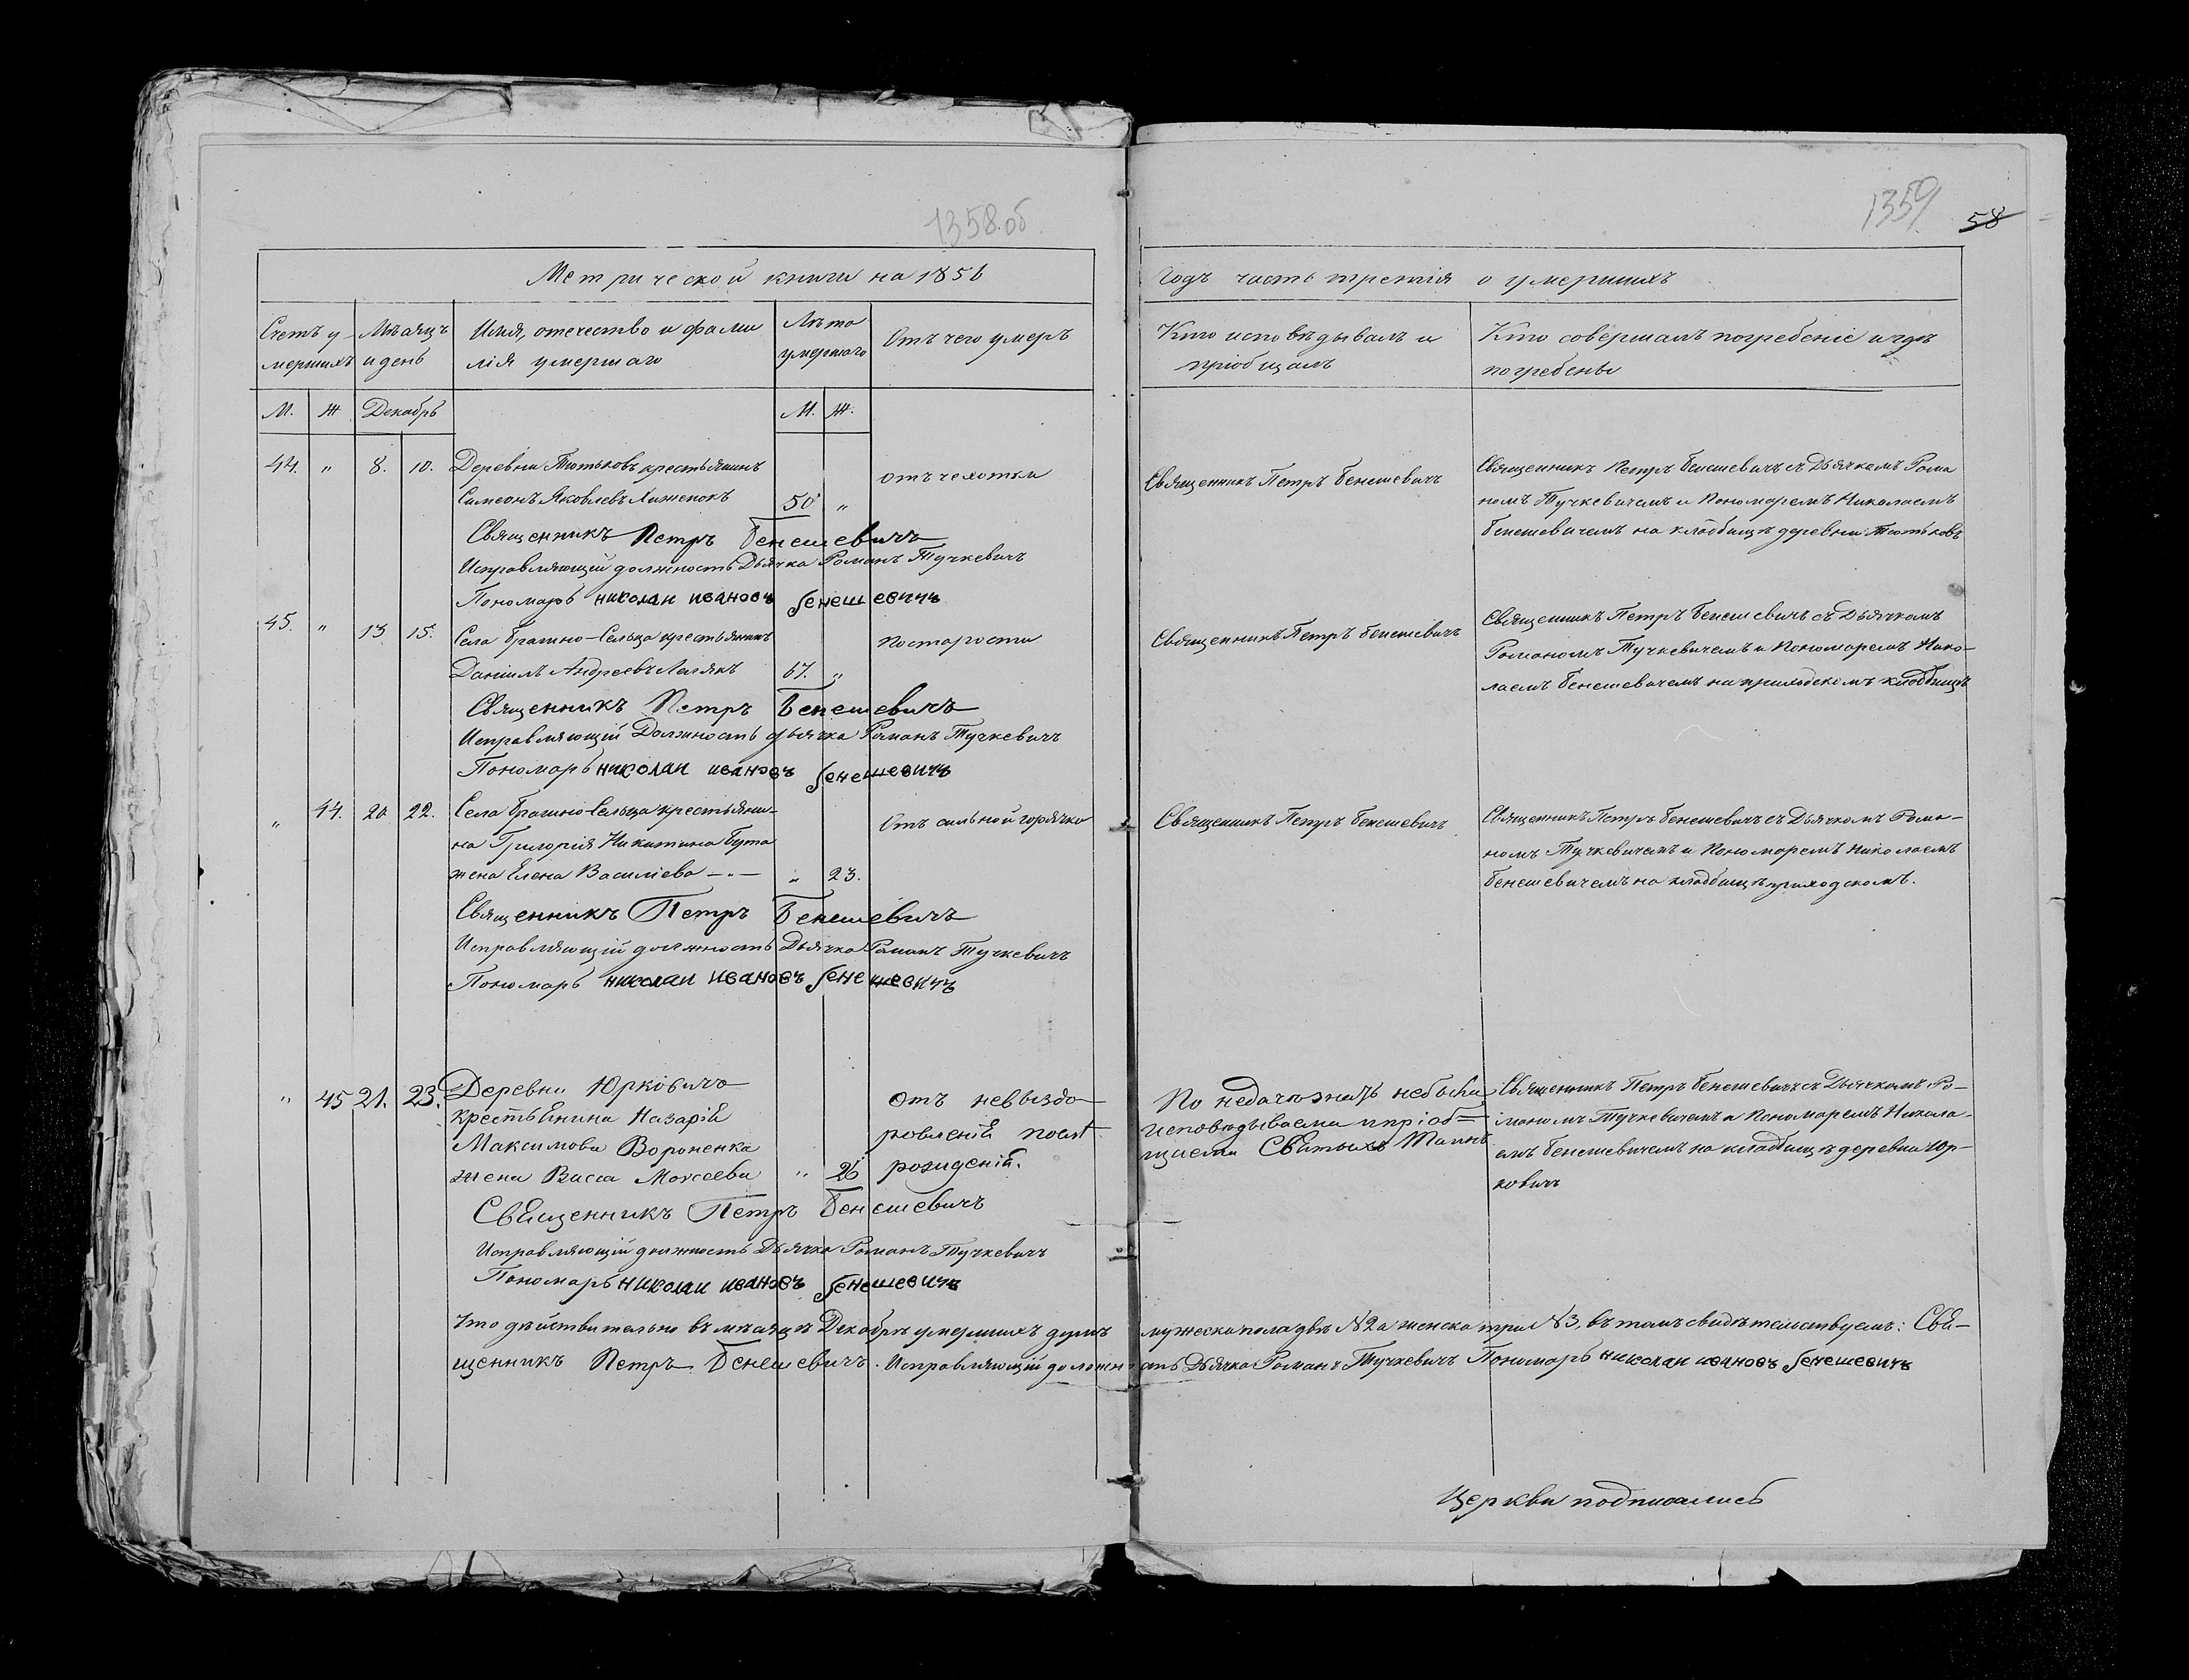 1358.об
1359
58
Метрической книги на 1856
Годъ часть третія о умершихъ
Счетъ у-
мершихъ
Мѣсяцъ
и день
Имя, отечество и фами
лія умершаго
Лѣта
умершаго
Отъ чего умеръ
Кто исповѣдывалъ и
пріобщалъ
Кто совершалъ погребеніе и гдѣ
погребены
М. Ж Декабрь М. Ж.
44. " 8. 10. Деревни Тютьковъ крестьянинъ
Симеонъ Яковлевъ 50 "
отъ чехотки
Священникъ Петръ Бенешевичъ
Священникъ Петръ Бенешевичъ съ Дьячкомъ Рома
номъ Тучкевичемъ и Пономаремъ Николаемъ
Бенешевичемъ на кладбищѣ деревни Тютьковъ
Священникъ Петръ Бенешевичъ
Исправляющій должность Дьячка Романъ Тучкевичъ
Пономарь николаи ивановъ бенешевичъ
45. " 13 15. Села Брагино-Сельца крестьянинъ
Даніилъ Андреевъ 67. "
по старости
Священникъ Петръ Бенешевичъ
Священникъ Петръ Бенешевичъ съ Дьячкомъ
Романомъ Тучкевичемъ и Пономаремъ Нико-
лаемъ Бенешевичемъ на приходскомъ кладбищѣ
Священникъ Петръ Бенешевичъ
Исправляющій Должность дьячка Романъ Тучкевичъ
Пономарь николаи ивановъ бенешевичъ
" 44. 20 22. Села Брагино-Сельца крестьяни-
на Григорія Никитина Бута
жена Елена Василіева " 23.
Отъ сильной горячки
Священникъ Петръ Бенешевичъ
Священникъ Петръ Бенешевичъ съ Дьячкомъ Рома-
номъ Тучкевичемъ и Пономаремъ Николаемъ
Бенешевичемъ на кладбищѣ приходскомъ.
Священникъ Петръ Бенешевичъ
Исправляющій должность Дьячка Романъ Тучкевичъ
Пономарь николаи ивановъ бенешевичъ
" 45 21. 23. Деревни Юрковичъ
крестьянина Назарія
Максимова Вороненка
жена Васса Моисеева " 26
отъ невыздо-
ровленія
рожденія.
По небыла
исповѣдываема и пріоб=
щаема Святыхъ Таинъ
Священникъ Петръ Бенешевичъ съ Дьячкомъ Ро-
маномъ Тучкевичемъ и Пономаремъ Никола-
емъ Бенешевичемъ на кладбищѣ деревни Юр-
ковичъ
Священникъ Петръ Бенешевичъ
Исправляющій должность Дьячка Романъ Тучкевичъ
Пономарь николаи ивановъ бенешевичъ
Что дѣйствительно въ мѣсяцѣ Декабрѣ умершихъ душъ мужеска пола двѣ №2 а женска три №3, въ томъ свидѣтельствуемъ: Свя-
щенникъ Петръ Бенешевичъ. Исправляющій должность Дьячка Романъ Тучкевичъ Пономарь николаи ивановъ бенешевичъ
Церкви подписались